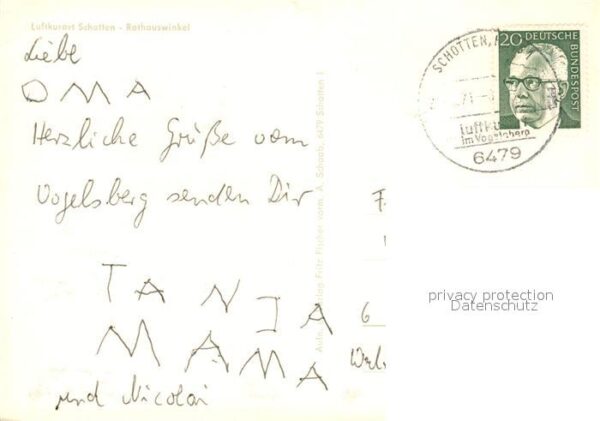 Luftkurort Schotten - Rathauswinkel
Liebe
OMA
Herzliche Grüße vom
Vogelsberg senden Dir
TANJA
MAMA
und Nicolai
Fritz Fischer vorm. A. Schaab, 6479 Schotten 1
SCHOTTEN,
Luftku
im Vogelsberg
6479
20 DEUTSCHE
BUNDESPOST
6
privacy protection
Datenschutz